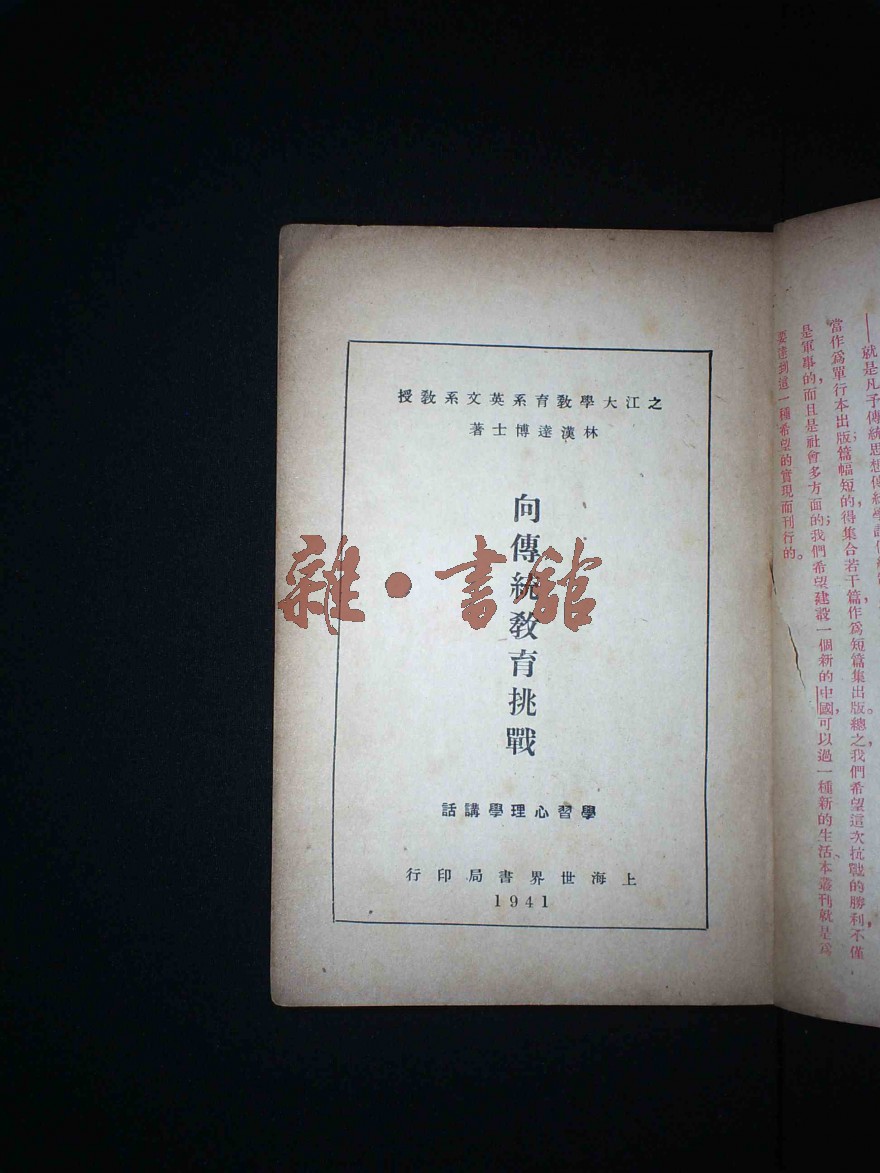 之江大學教育系英文系教授
林漢達博士著
向傳統教育挑戰
學習心理學講話
上海世界書局印行
1941
雜·書館
就是凡予傳統思想傳統學說
當作爲單行本出版;篇幅短的得集合若干篇,作爲短篇集出版。總之,我們希望這次抗戰的勝利,不僅
是軍事的,而且是社會多方面的;我們希望建設一個新的中國,可以過一種新的生活、本叢刊就是爲
要達到這一種希望的實現而刊行的。